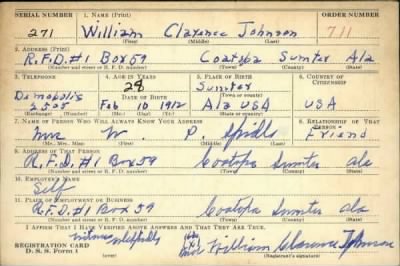 SERIAL NUMBER 1. NAME (Print) ORDER NUMBER
271 William Clarence Johnson 711
(First) (Middle) (Last)
2. ADDRESS (Print)
R.F.D.#1 Box 59 Coatopa Sumter Ala
(Number and street or R. F. D. number) (Town) (County) (State)
3. TELEPHONE 4. AGE IN YEARS 5. PLACE OF BIRTH 6. COUNTRY OF CITIZENSHIP
28 Sumter
Demopolis DATE OF BIRTH (Town or county)
2505 Feb 10 1912 Ala USA USA
(Exchange) (Number) (Mo.) (Day) (Yr.) (State or country)
7. NAME OF PERSON WHO WILL ALWAYS KNOW YOUR ADDRESS 8. RELATIONSHIP OF THAT PERSON
Mrs W. P. Friend
(Mr., Mrs., Miss) (First) (Middle) (Last)
9. ADDRESS OF THAT PERSON
R.F.D.#1 Box 59 Coatopa Sumter Ala
(Number and street or R. F. D. number) (Town) (County) (State)
10. EMPLOYER'S NAME
Self
11. PLACE OF EMPLOYMENT OR BUSINESS
R.F.D.#1 Box 59 Coatopa Sumter Ala
(Number and street or R. F. D. number) (Town) (County) (State)
I AFFIRM THAT I HAVE VERIFIED ABOVE ANSWERS AND THAT THEY ARE TRUE.
REGISTRATION CARD William Clarence Johnson
D. S. S. Form 1 (Registrant's signature)